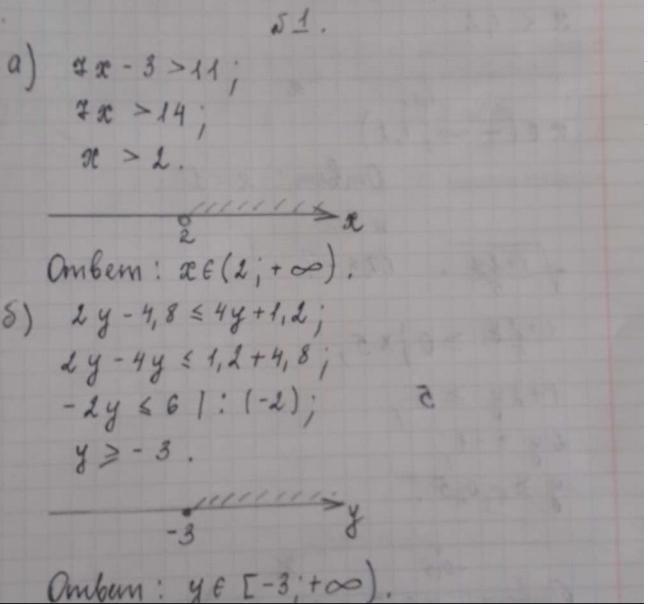 №1.
а) 7x - 3 > 11;
7x > 14;
x > 2.
2 x
Ответ: x ∈ (2; +∞).
б) 2y - 4,8 ≤ 4y + 1,2;
2y - 4y ≤ 1,2 + 4,8;
-2y ≤ 6 | : (-2);
y ≥ -3.
-3 y
Ответ: y ∈ [-3; +∞).